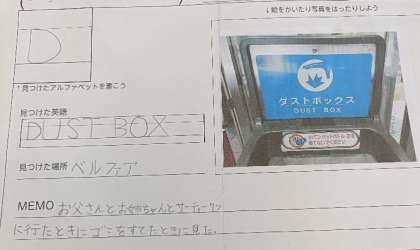 ↓絵をかいたり写真をはったりしよう
D
↑見つけたアルファベットを書こう
見つけた英語
DUST BOX
ダストボックス
DUST BOX
見つけた場所 ベルファア
MEMO お父さんとお姉ちゃんとサーティーワン
に行たときにゴミをすてたときに見た。